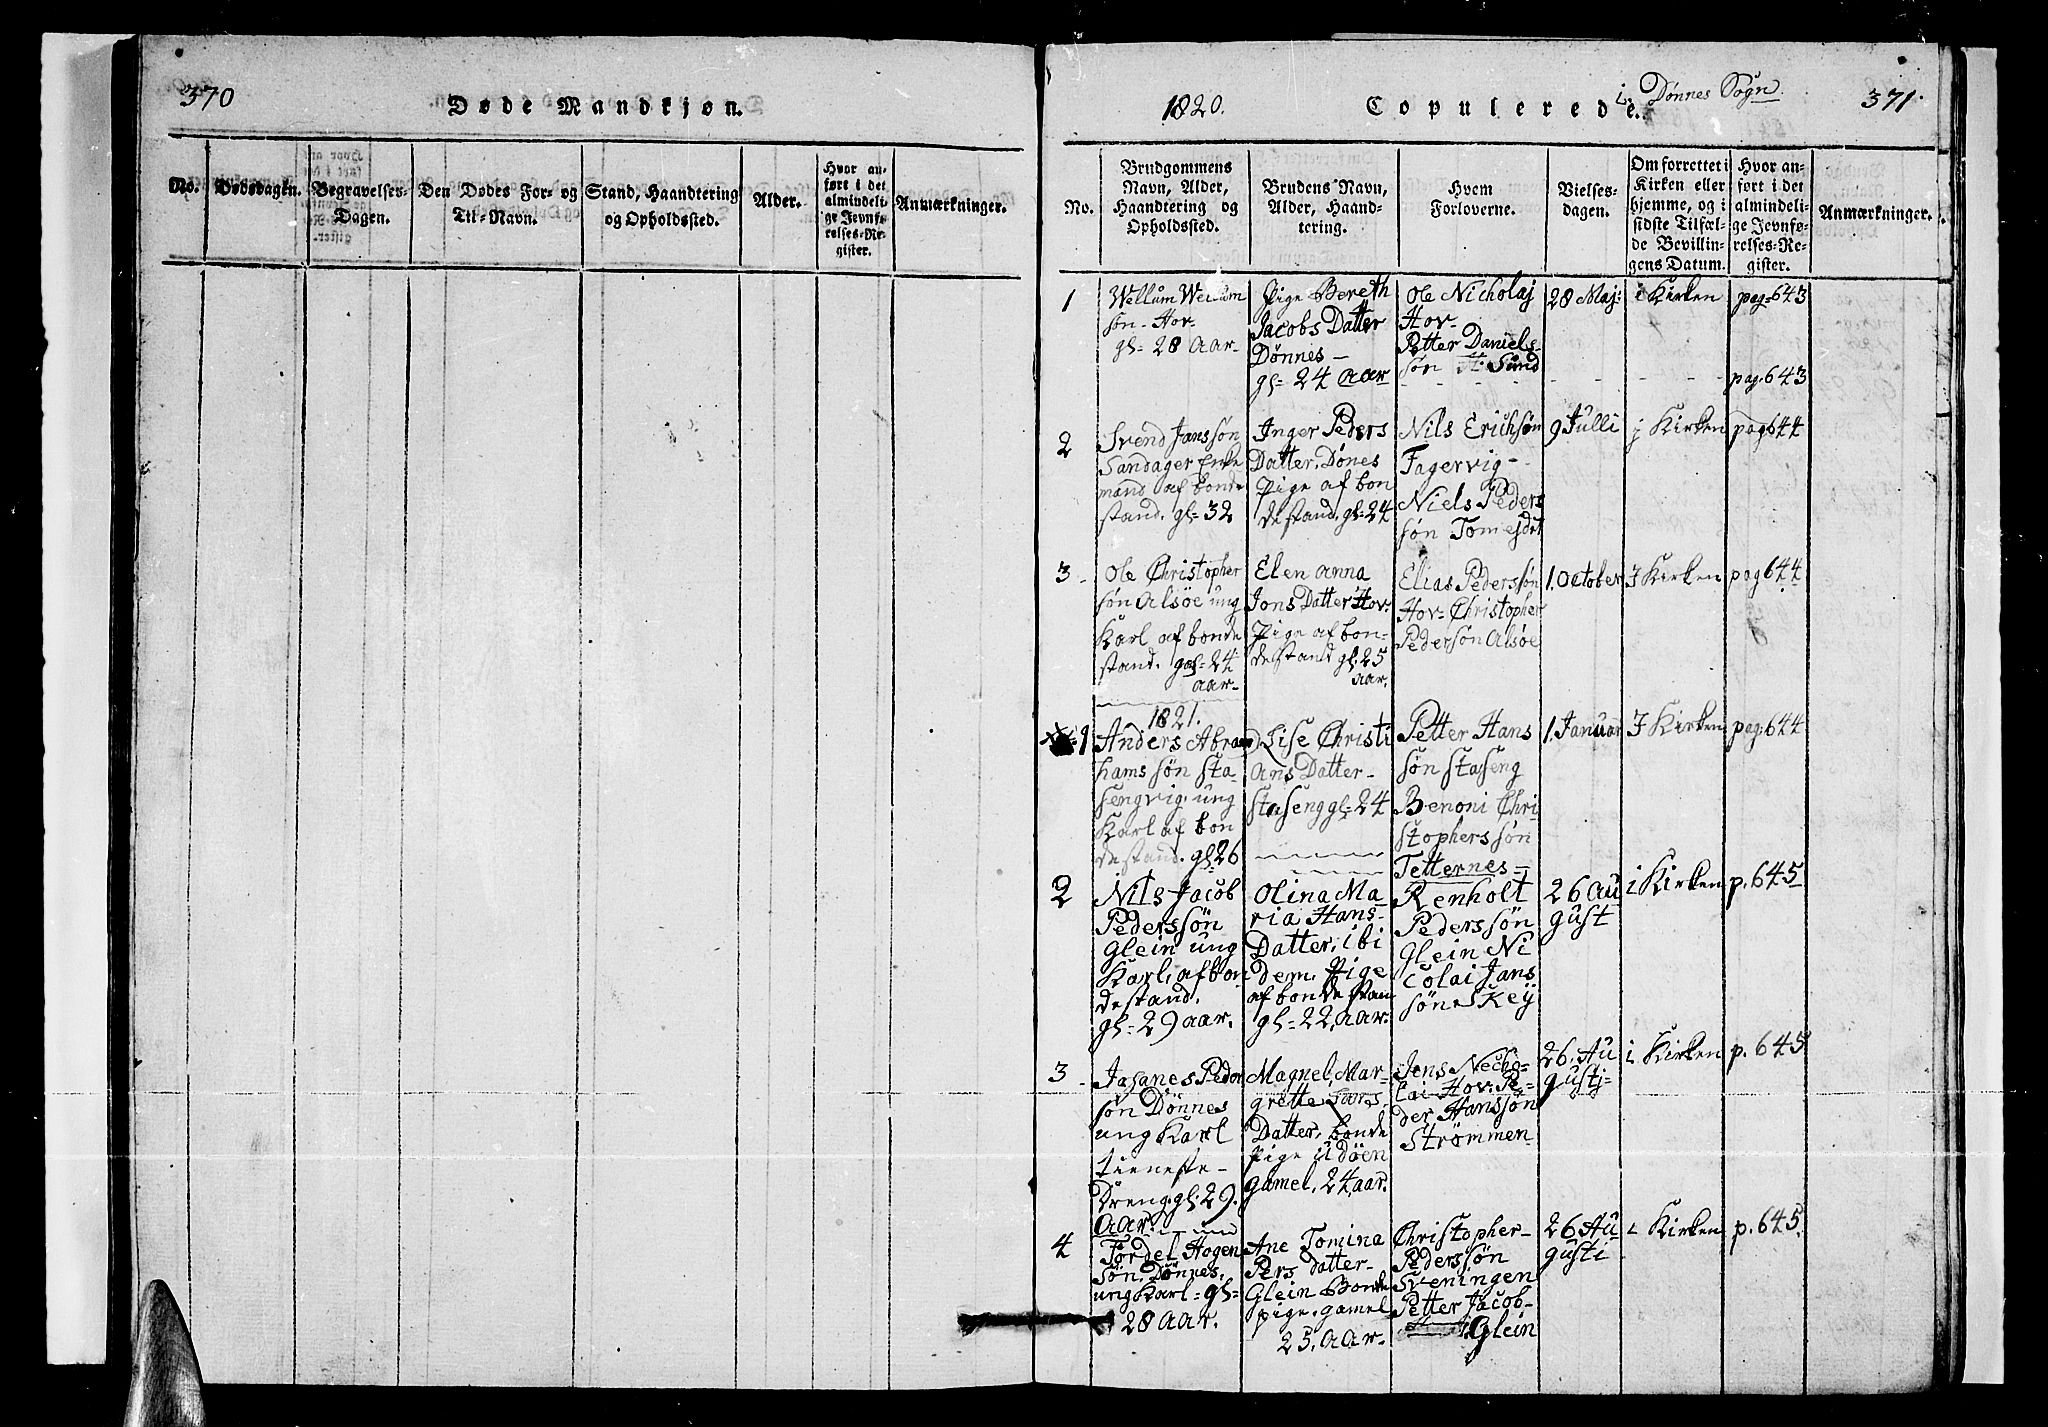 370
Døde Mandkjøn.
No.
Dødsdagen.
Begravelses-
Dagen.
Den Dødes For- og
Til-Navn.
Stand, Haandtering
og Opholdssted.
Alder.
Hvor an-
ført i det
almindeli-
ge Jevnfø-
relses-Re-
gister.
Anmærkninger.
1820.
Copulerede.
i Dønnes Sogn.
371.
No.
Brudgommens
Navn, Alder,
Haandtering og
Opholdssted.
Brudens Navn,
Alder, Haand-
tering.
Hvem
Forloverne.
Vielses-
dagen.
Om forrettet i
Kirken eller
hjemme, og i
sidste Tilfæl-
de Bevillin-
gens Datum.
Hvor an-
ført i det
almindeli-
ge Jevnfø-
relses-Re-
gister.
Anmærkninger.
1
Wellum Wellum
søn - Hov-
gl= 28 Aar-
Pige Bereth
Jacobs Datter
Dønnes -
gl= 24 Aar
Ole Nicholaj
Hov-
Petter Daniels-
søn H: Sund
28 Maj:
i Kirken
pag=643
pag.643
2
Svend Janssøn
Sandager Enke
mand af bonde
stand. gl=32
Inger Peders
Datter. Dønes
Pige af bon
destand. gl=24
Nils Erichsøn
Fagervig-
Niels Peders
søn Tomesdet
9 Julli
j Kirken
pag644
3
Ole Christopher
søn Alsøe ung
Karl af bonde
stand. gl=24
aar-
Elen Anna
Jons Datter Hov:
Pige af bon-
destand gl:25
aar.
Elias Pederssøn
Hov- Christopher
Pedersøn Alsøe
1. October
I Kirken
pag644
1821.
1
Anders Abra
hams søn Sta-
sengvig. ung
Karl af bon
destand. gl26
Lise Christi
Ans Datter-
Staseng gl=24
Petter Hans
søn Staseng
Benoni Chri
stophers søn
Tetternes-
1. Januar
I Kirken
pag.644
2
Nils Jacob
Pederssøn
Glein ung
Karl, af bon
destand.
gl=29 aar.
Olina Ma-
ria Hans-
Datter, ibi
dem. Pige
af bonde stan
gl=22, aar.
Renholt
Peders søn
Glein Ni
colai Jans
søn Skeÿ
26 Au
gust
i Kirken
p.645
3
Johanes Peder
søn Dønnes
ung Karl
tieneste-
Dreng. gl:29.
aar.
Magnel, Mar-
grette Lars
Datter. bonde
Pige
gamel, 24, aar.
Jens Necho-
lai Hov. Pe-
der Hanssøn
Strømmen
26. Au
gusti-
i Kirken
p. 645
4
Tordel Hogen
søn. Dønnes.
ung Karl= gl=
28 Aar.
Ane Tomina
Pers Datter-
Glein Bonde
pige. gamel
25. Aar-
Christopher-
Pederssøn
Sveningen
Petter Jacob-
Glein
26 Au
gusti
i Kirken
p. 645